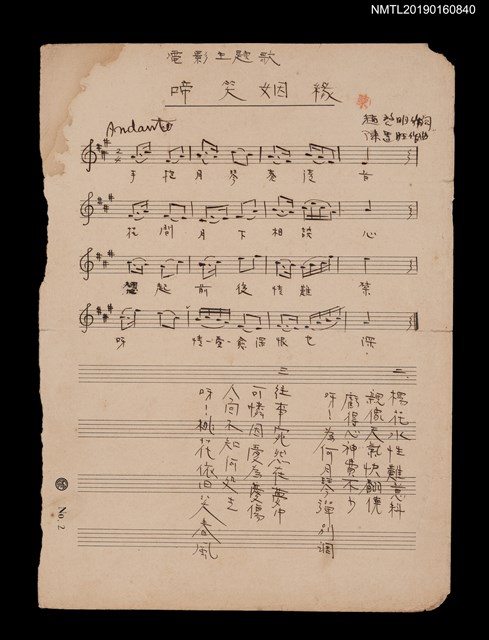 NMTL20190160840
電影主題歌
啼笑姻緣
Andante
作詞
作曲
手抱月琴奏清音
花間月下相談心
想起前後情難禁
呀 情一愈深恨也深
二、
楊花水性難意料
親像天就快翻僥
虧得心神費不少
呀!為何月琴彈別調
三
往事宛然在夢中
可憐因愛為愛傷
人面不知何處走
呀!桃花依舊笑春風
No. 2